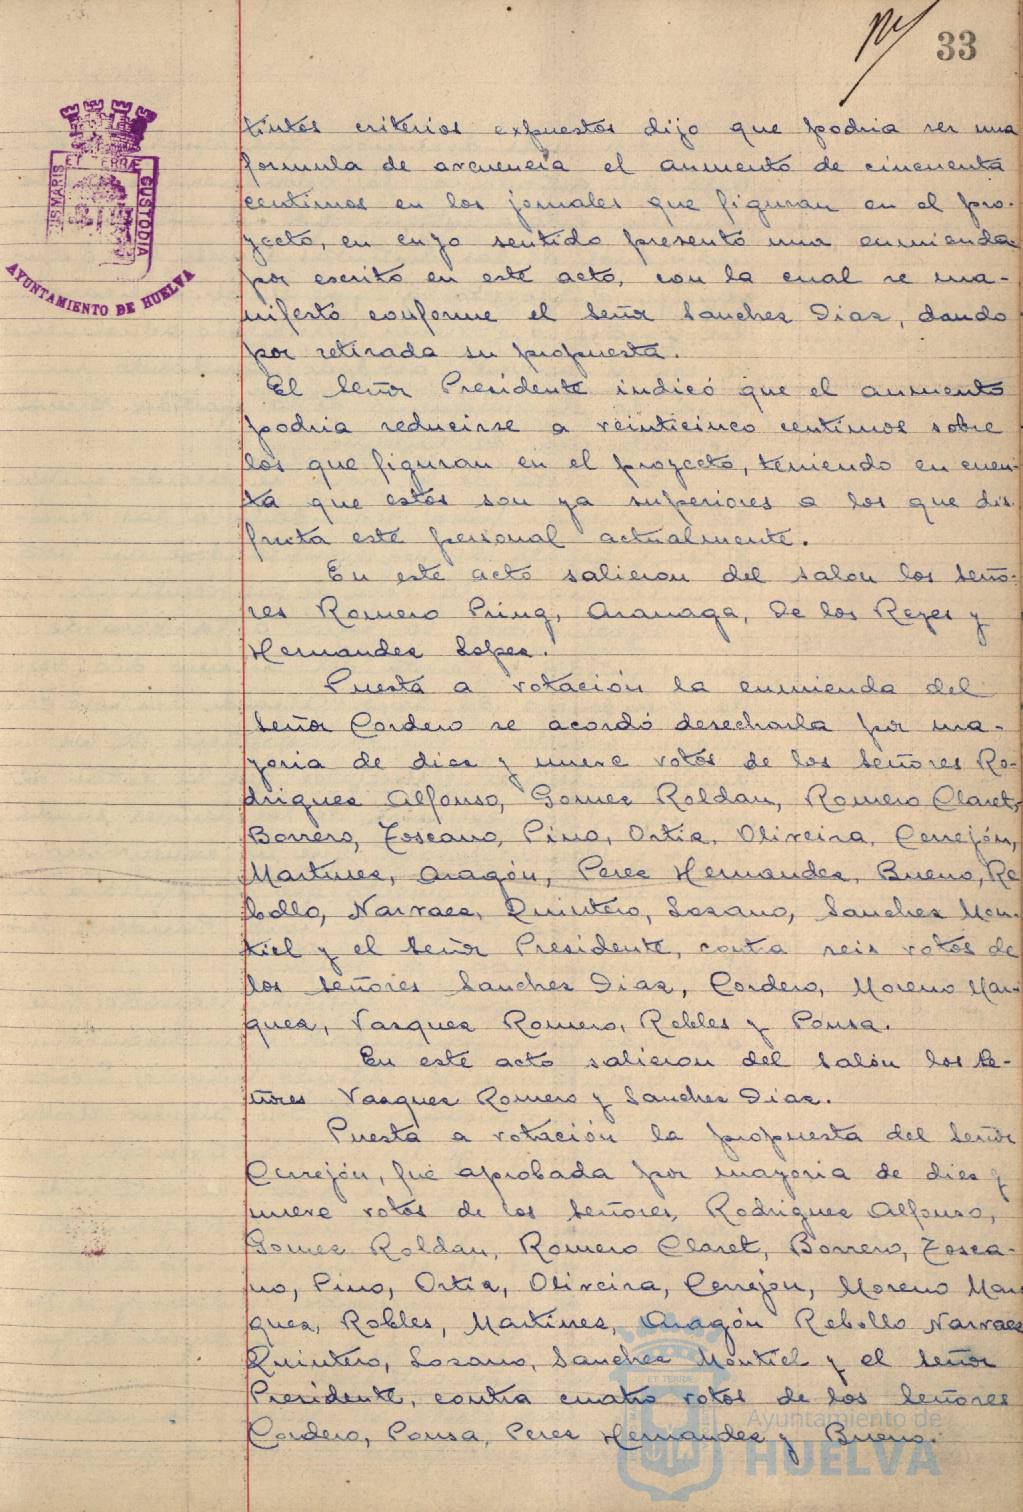 33
ET TERRÆ
US MARIS
CUSTODIA
AYUNTAMIENTO DE HUELVA
tintos criterios expuestos dijo que podria ser una
formula de avenencia el aumento de cincuenta
centimos en los jornales que figuran en el pro-
yecto, en cuyo sentido presentó una enmienda
por escrito en este acto, con la cual se ma-
nifestó conforme el Señor Sanchez Diaz, dando
por retirada su propuesta.
El Señor Presidente indicó que el aumento
podria reducirse a veinticinco centimos sobre
los que figuran en el proyecto, teniendo en cuen-
ta que estos son ya superiores a los que dis-
fruta este personal actualmente.
En este acto salieron del salon los Seño-
res Romero Pring, Aranaga, De los Reyes y
Hernandez Lopez.
Puesta a votación la enmienda del
Señor Cordero se acordó desecharla por ma-
yoria de diez y nueve votos de los Señores Ro-
driguez Alfonso, Gomez Roldan, Romero Claret,
Borrero, Toscano, Pino, Ortiz, Oliveira, Cerrejón,
Martinez, Aragón, Perez Hernandez, Bueno, Re
bollo, Narvaez, Quintero, Lozano, Sanchez Mon-
tiel y el Señor Presidente, contra seis votos de
los Señores Sanchez Diaz, Cordero, Moreno Mar-
quez, Vazquez Romero, Robles y Ponsa.
En este acto salieron del Salón los Se-
ñores Vazquez Romero y Sanchez Diaz.
Puesta a votación la propuesta del Señor
Cerrejón, fué aprobada por mayoria de diez y
nueve votos de los Señores, Rodriguez Alfonso,
Gomez Roldan, Romero Claret, Borrero, Tosca-
no, Pino, Ortiz, Oliveira, Cerrejon, Moreno Mar
quez, Robles, Martinez, Aragón Rebollo Narvaez
Quintero, Lozano, Sanchez Montiel y el Señor
Presidente, contra cuatro votos de los Señores
Cordero, Ponsa, Perez Hernandez y Bueno.
ET TERRÆ
Ayuntamiento de
HUELVA